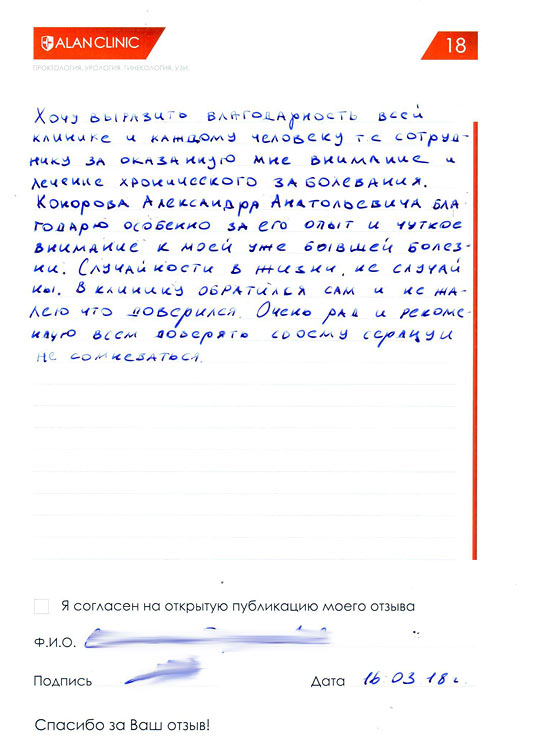 ALANCLINIC
18
ПРОКТОЛОГИЯ. УРОЛОГИЯ. ГИНЕКОЛОГИЯ. УЗИ.
Хочу выразить благодарность всей
клинике и каждому человеку т.е сотруд-
нику за оказанную мне внимание и
лечение хронического заболевания.
Конорова Александра Анатольевича бла-
годарю особенно за его опыт и чуткое
внимание к моей уже бывшей болез-
ни. Случайности в жизни, не случай
ны. В клинику обратился сам и не жа-
лею что доверился. Очень рад и рекоме-
ндую всем доверять своему сердцу и
не сомневаться.
Я согласен на открытую публикацию моего отзыва
Ф.И.О.
Подпись Дата 16 03 18 г.
Спасибо за Ваш отзыв!